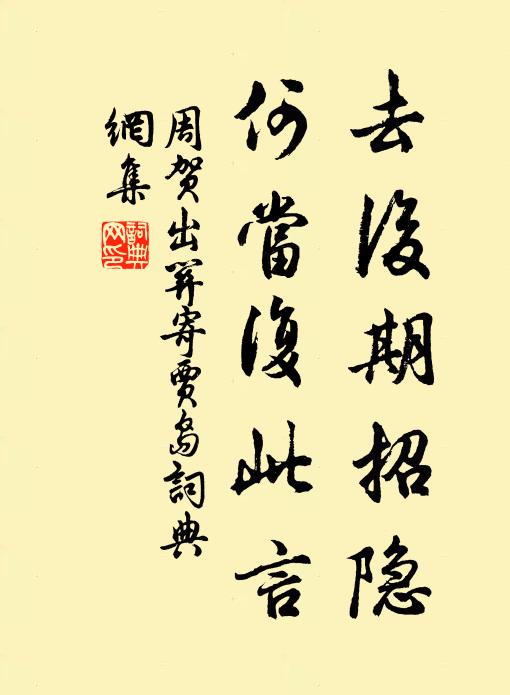 去後期招隐
何當復此言
周贺出關寄賈島詞典
網集
詞典
网印